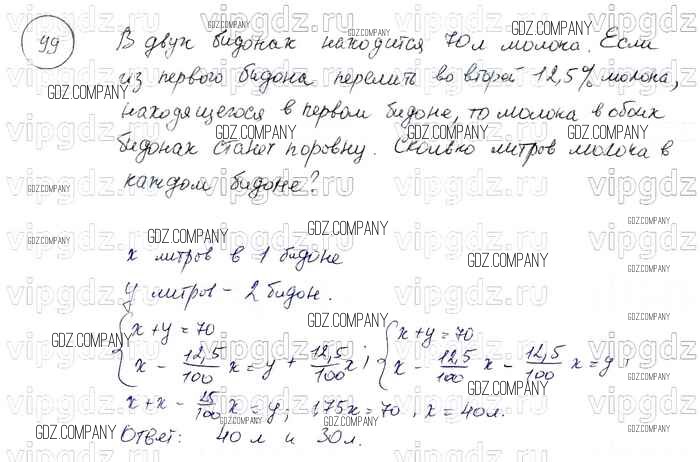 99
В двух бидонах находится 70л молока. Если
из первого бидона перелить во второй 12,5% молока,
находящегося в первом бидоне, то молока в обоих
бидонах станет поровну. Сколько литров молока в
каждом бидоне?
x литров в 1 бидоне
y литров - 2 бидон.
{ x+y=70
x - 12,5/100 x = y + 12,5/100 x ; { x+y=70
x - 12,5/100 x - 12,5/100 x = y ;
x+x - 25/100 x = y ; 1,75x = 70, x = 40л.
Ответ: 40л и 30л.
GDZ.COMPANY
vipgdz.ru